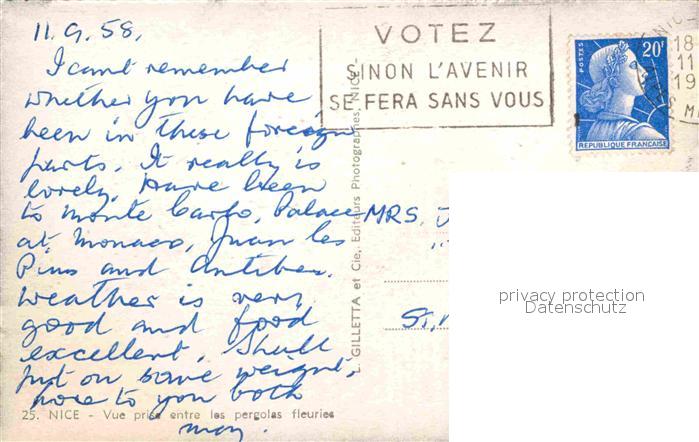 11.9.58.
I cant remember
whether you have
been in these foreign
parts. It really is
lovely. Have been
to Monte Carlo, Palace
at Monaco, Juan les
Pins and Antibes.
Weather is very
good and food
excellent. Shall
put on some weight,
love to you both
25. NICE - Vue prise entre les pergolas fleuries
L. GILLETTA et Cie, Editeurs Photographes, NICE -
VOTEZ
SINON L'AVENIR
SE FERA SANS VOUS
POSTES
20F
REPUBLIQUE FRANCAISE
18
11
19
MRS. J
St.
privacy protection
Datenschutz